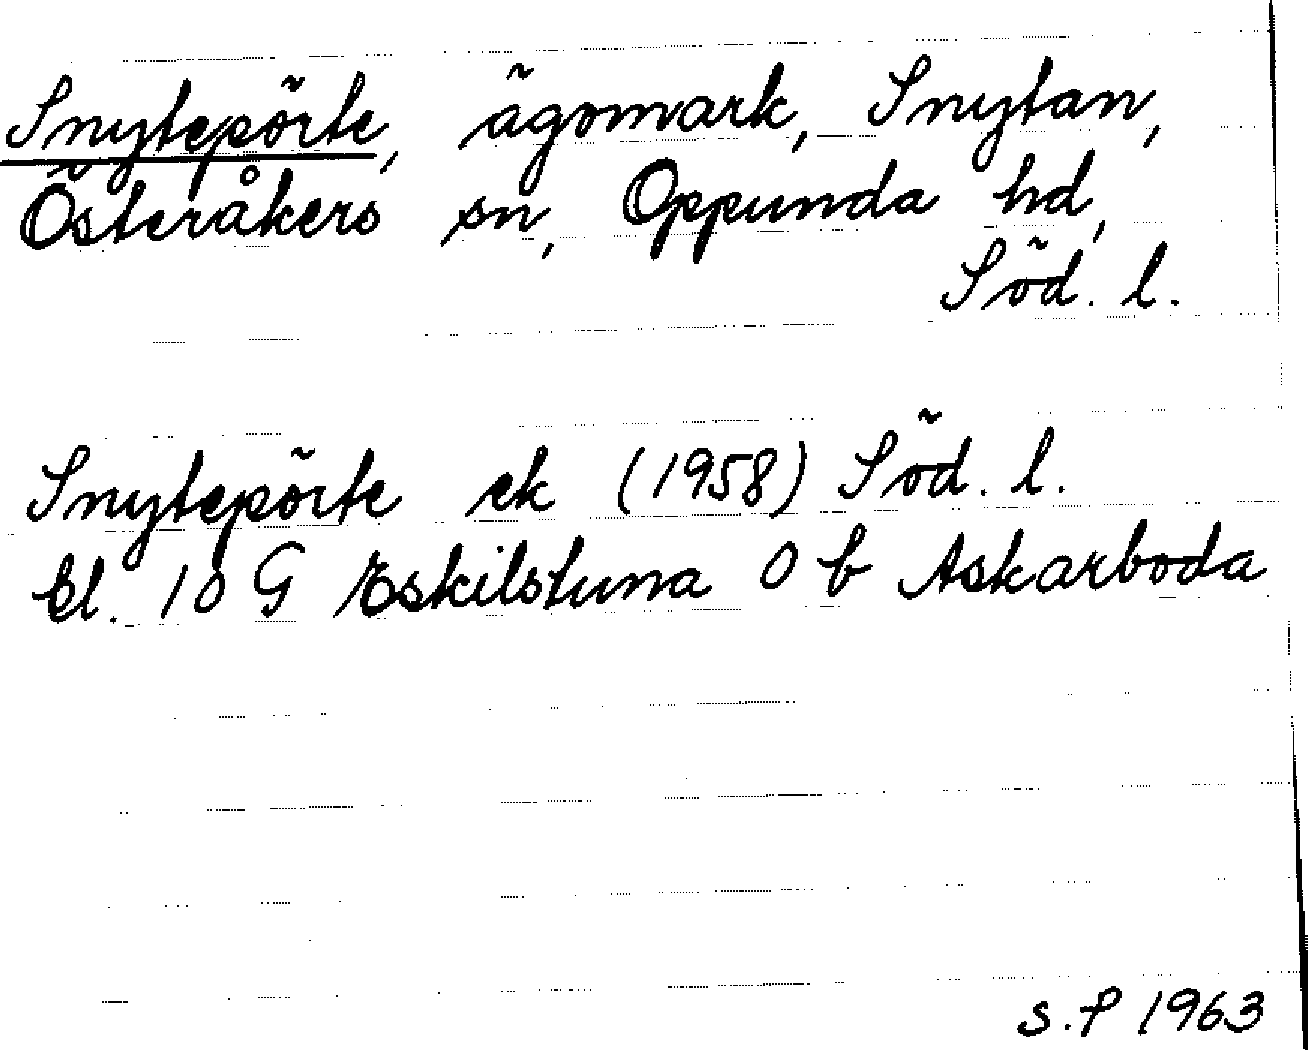 Snytepörte, ägomark, Snytan,
Österåkers sn, Oppunda hd,
Söd. l.
Snytepörte ek (1958) Söd. l.
bl. 10 G Eskilstuna 0 b Askarboda
S.P 1963